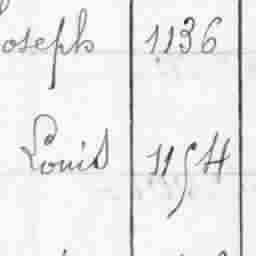 Joseph 1136
Louis 1154